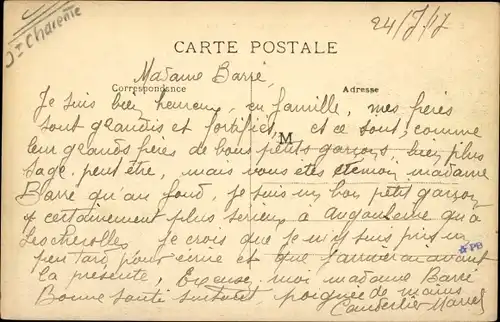 Dt Charente
24/7/17
CARTE POSTALE
Madame Barré,
Correspondance
Adresse
Je suis bien heureux, en famille, mes frères
sont grandis et fortifiés, et ce sont, comme
M
leur grands frères de bons petits garçons, bien plus
sage peut être, mais vous êtes témoin madame
Barré qu'au fond, je suis un bon petit garçon
et certainement plus sérieux à Angoulême qu'à
Lescherolles, je crois que je m'y suis pris un
peu tard pour écrire et que j'arriverai avant
la présente, Excusez moi madame Barré
Bonne santé surtout, poignée de mains
Marcel